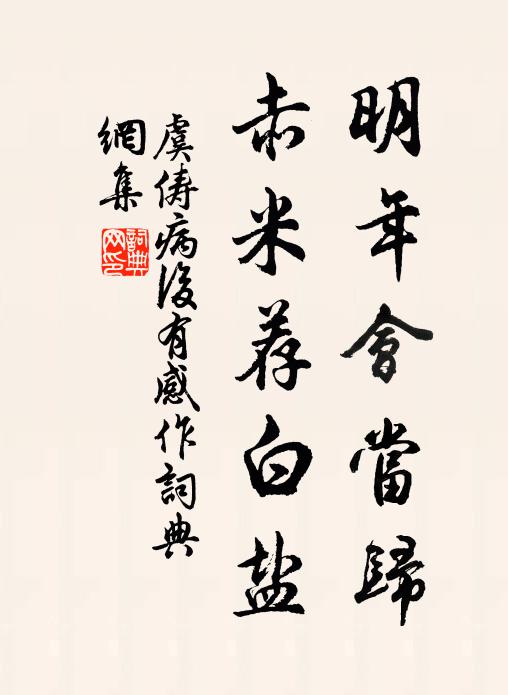 明年會當歸
赤米荐白盐
虞儔病後有感作詞典
網集
詞典
网印